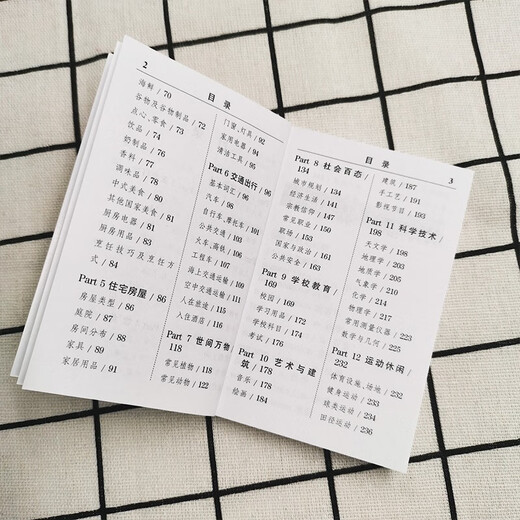 2
目录
海鲜 / 70
谷物及谷物制品 / 72
点心、零食 / 73
饮品 / 74
奶制品 / 76
香料 / 77
调味品 / 78
中式美食 / 80
其他国家美食 / 81
厨房电器 / 81
厨房用品 / 83
烹饪技巧及烹饪方
式 / 84
Part 5 住宅房屋 / 86
房屋类型 / 86
庭院 / 87
房间分布 / 88
家具 / 89
家居用品 / 91
门窗、灯具 / 92
家用电器 / 94
清洁工具 / 95
Part 6 交通出行 / 96
基本词汇 / 96
汽车 / 98
自行车、摩托车 / 101
公共交通 / 103
火车、高铁 / 106
工程车 / 107
海上交通运输 / 109
空中交通运输 / 111
人在旅途 / 115
入住酒店 / 116
Part 7 世间万物 /
118
常见植物 / 118
常见动物 / 122
目录
3
Part 8 社会百态 /
134
城市规划 / 134
经济生活 / 141
宗教信仰 / 147
常见职业 / 150
职场 / 153
国家与政治 / 161
公共安全 / 163
Part 9 学校教育 /
169
校园 / 169
学习用品 / 172
学校科目 / 174
考试 / 176
Part 10 艺术与建
筑 / 178
音乐 / 178
绘画 / 184
建筑 / 187
手工艺 / 191
影视节目 / 193
Part 11 科学技术 /
198
天文学 / 198
地理学 / 203
地质学 / 205
气象学 / 210
化学 / 214
物理学 / 217
常用测量仪器 / 223
数学与几何 / 225
Part 12 运动休闲 /
232
体育设施、场地 / 232
健身运动 / 233
球类运动 / 234
田径运动 / 236